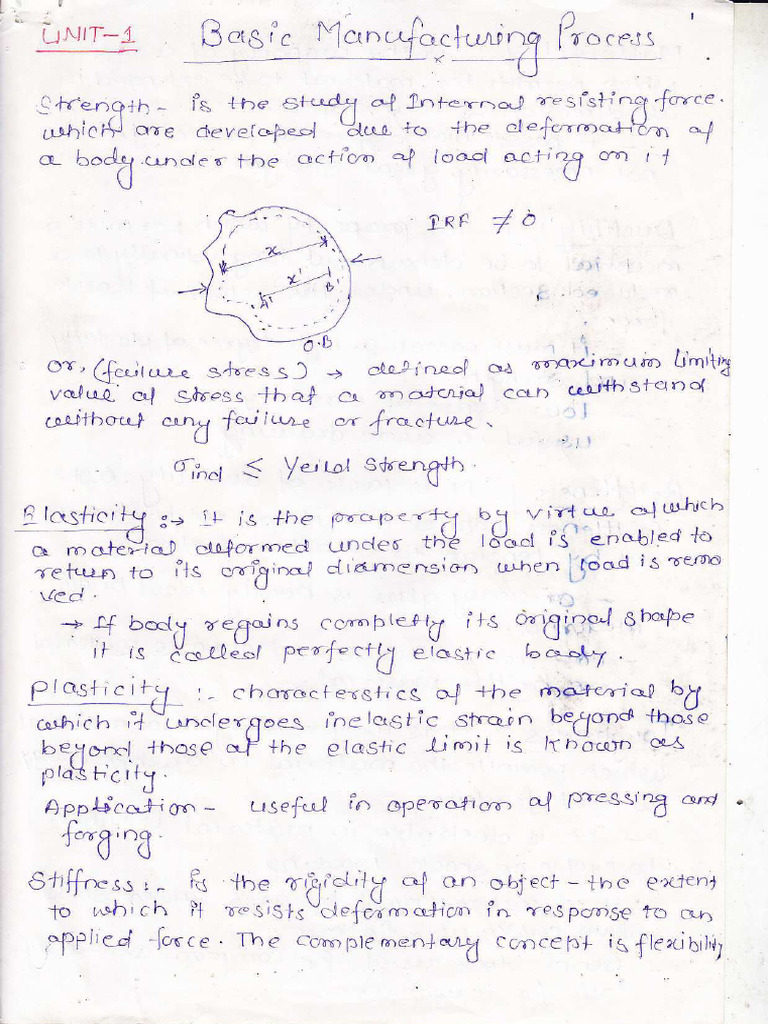 UNIT-1 Basic Manufacturing Process
Strength - is the study of Internal resisting force.
which are developed due to the deformation of
a body under the action of load acting on it
IRF ≠ 0
x
x'
A' B'
O.B
or, (failure stress) → defined as maximum limiting
value of stress that a material can withstand
without any failure or fracture.
σind ≤ Yeild strength.
Elasticity :→ It is the property by virtue of which
a material deformed under the load is enabled to
return to its original diamension when load is remo
ved.
→ If body regains completly its original shape
it is called perfectly elastic body.
Plasticity :- characterstics of the material by
which it undergoes inelastic strain beyond those
beyond those at the elastic limit is known as
plasticity.
Application - useful in operation of pressing and
forging.
Stiffness :- is the rigidity of an object - the extent
to which it resists deformation in response to an
applied force. The complementary concept is flexibility